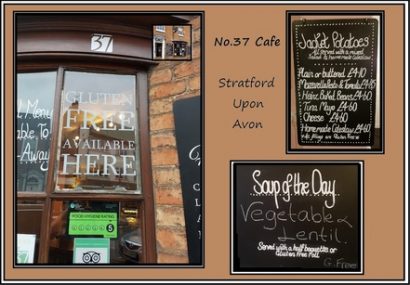 37
GLUTEN
FREE
AVAILABLE
HERE
FOOD HYGIENE RATING
5
No.37 Cafe
Stratford
Upon
Avon
Jacket Potatoes
All served with a mixed
Salad & homemade Coleslaw
Plain or buttered £4.10
Mozzarella & Tomato
Heinz Baked Beans £4.60
Tuna Mayo £4.60
Cheese £4.60
Homemade Coleslaw £4.60
Soup of the Day
Vegetable &
Lentil
Served with a half baguette or
Gluten Free Roll
G. Free